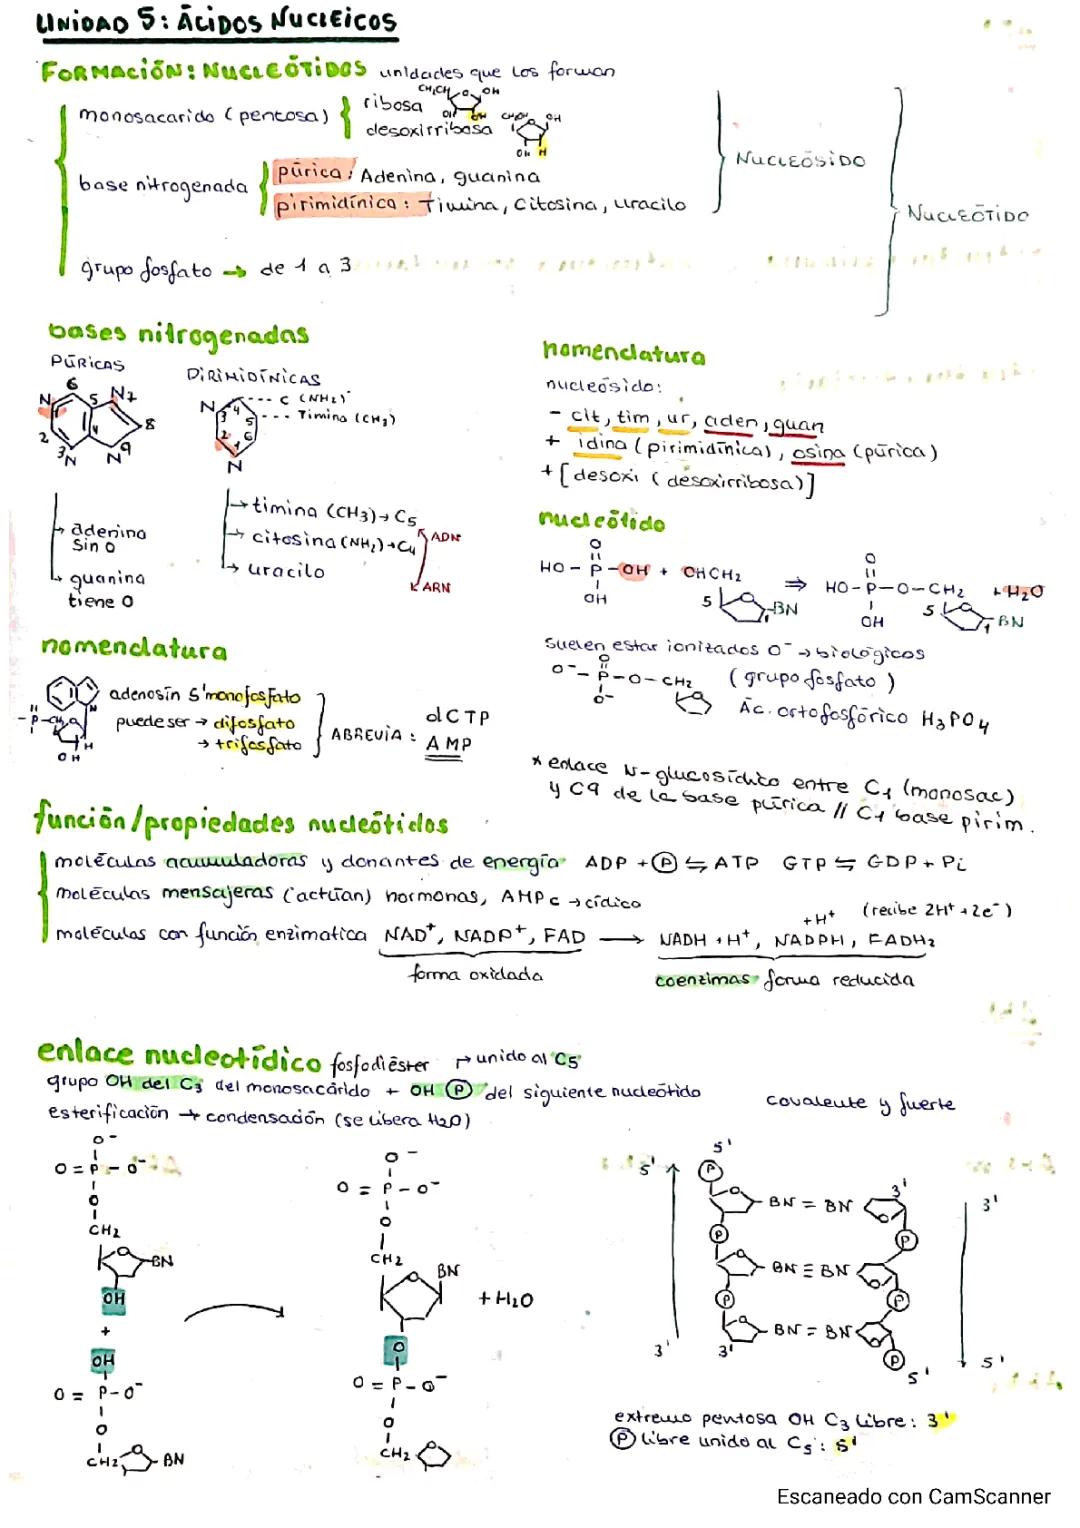 UNIDAD 5: ÁCIDOS NUCLEICOS
FORMACIÓN: NUCLEÓTIDOS unidades que los forman
monosacarido (pentosa) { ribosa
desoxirribosa
base nitrogenada { púrica: Adenina, guanina
pirimidínica: Timina, Citosina, uracilo
grupo fosfato → de 1 a 3
NUCLEÓSIDO
NUCLEÓTIDO
bases nitrogenadas
PÚRICAS
PIRIMIDÍNICAS
C (NH2)
Timina (CH3)
→ adenina
sin O
→ guanina
tiene O
→ timina (CH3) → C5
→ citosina (NH2) → C4
→ uracilo
ADN
ARN
nomenclatura
nucleósido:
- cit, tim, ur, aden, guan
+ idina (pirimidínica), osina (púrica)
+ [desoxi (desoxirribosa)]
nucleótido
HO - P - OH + OHCH2 ⇒ HO-P-O-CH2 + H2O
OH
5
BN
OH
5
1 BN
suelen estar ionizados O⁻ → biológicos
O⁻ - P - O - CH2 (grupo fosfato)
O⁻
Ác. ortofosfórico H3PO4
* enlace N-glucosídico entre C1 (monosac)
y C9 de la base púrica // C1 base pirim.
nomenclatura
adenosín 5'monofosfato
puede ser → difosfato
→ trifosfato
ABREVIA: dCTP
AMP
función/propiedades nucleótidos
moléculas acumuladoras y donantes de energía ADP + P ⇆ ATP GTP ⇆ GDP + Pi
moléculas mensajeras (actúan) hormonas, AMPc → cíclico
+H⁺ (recibe 2H⁺ + 2e⁻)
moléculas con función enzimatica NAD⁺, NADP⁺, FAD → NADH + H⁺, NADPH, FADH2
forma oxidada
coenzimas forma reducida
enlace nucleotídico fosfodiéster → unido al C5'
grupo OH del C3' del monosacárido + OH P del siguiente nucleótido
esterificación → condensación (se libera H2O)
covalente y fuerte
O⁻
O = P - O⁻
O
CH2
BN
OH
+
OH
O = P - O⁻
O
CH2
BN
O⁻
O = P - O⁻
O
CH2
BN
+ H2O
O
O = P - O⁻
O
CH2
5'
5'
P
BN = BN
3'
3'
P
P
BN ≡ BN
P
P
BN = BN
3'
3'
P
5'
5'
extremo pentosa OH C3 libre: 3'
P libre unido al C5': 5'
Escaneado con CamScanner